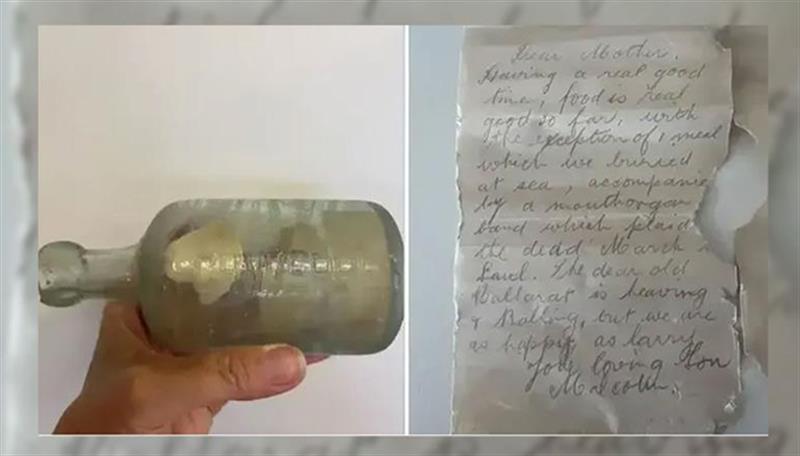 Dear Mother,
Having a real good
time, food is real
good so far, with
the exception of 1 meal
which we burried
at sea, accompanie
by a mouthorgan
band which plaid
the dead March
Saul. The dear old
Ballarat is heaving
& Rolling, but we are
as happy as larry
Your loving Son
Malcolm.